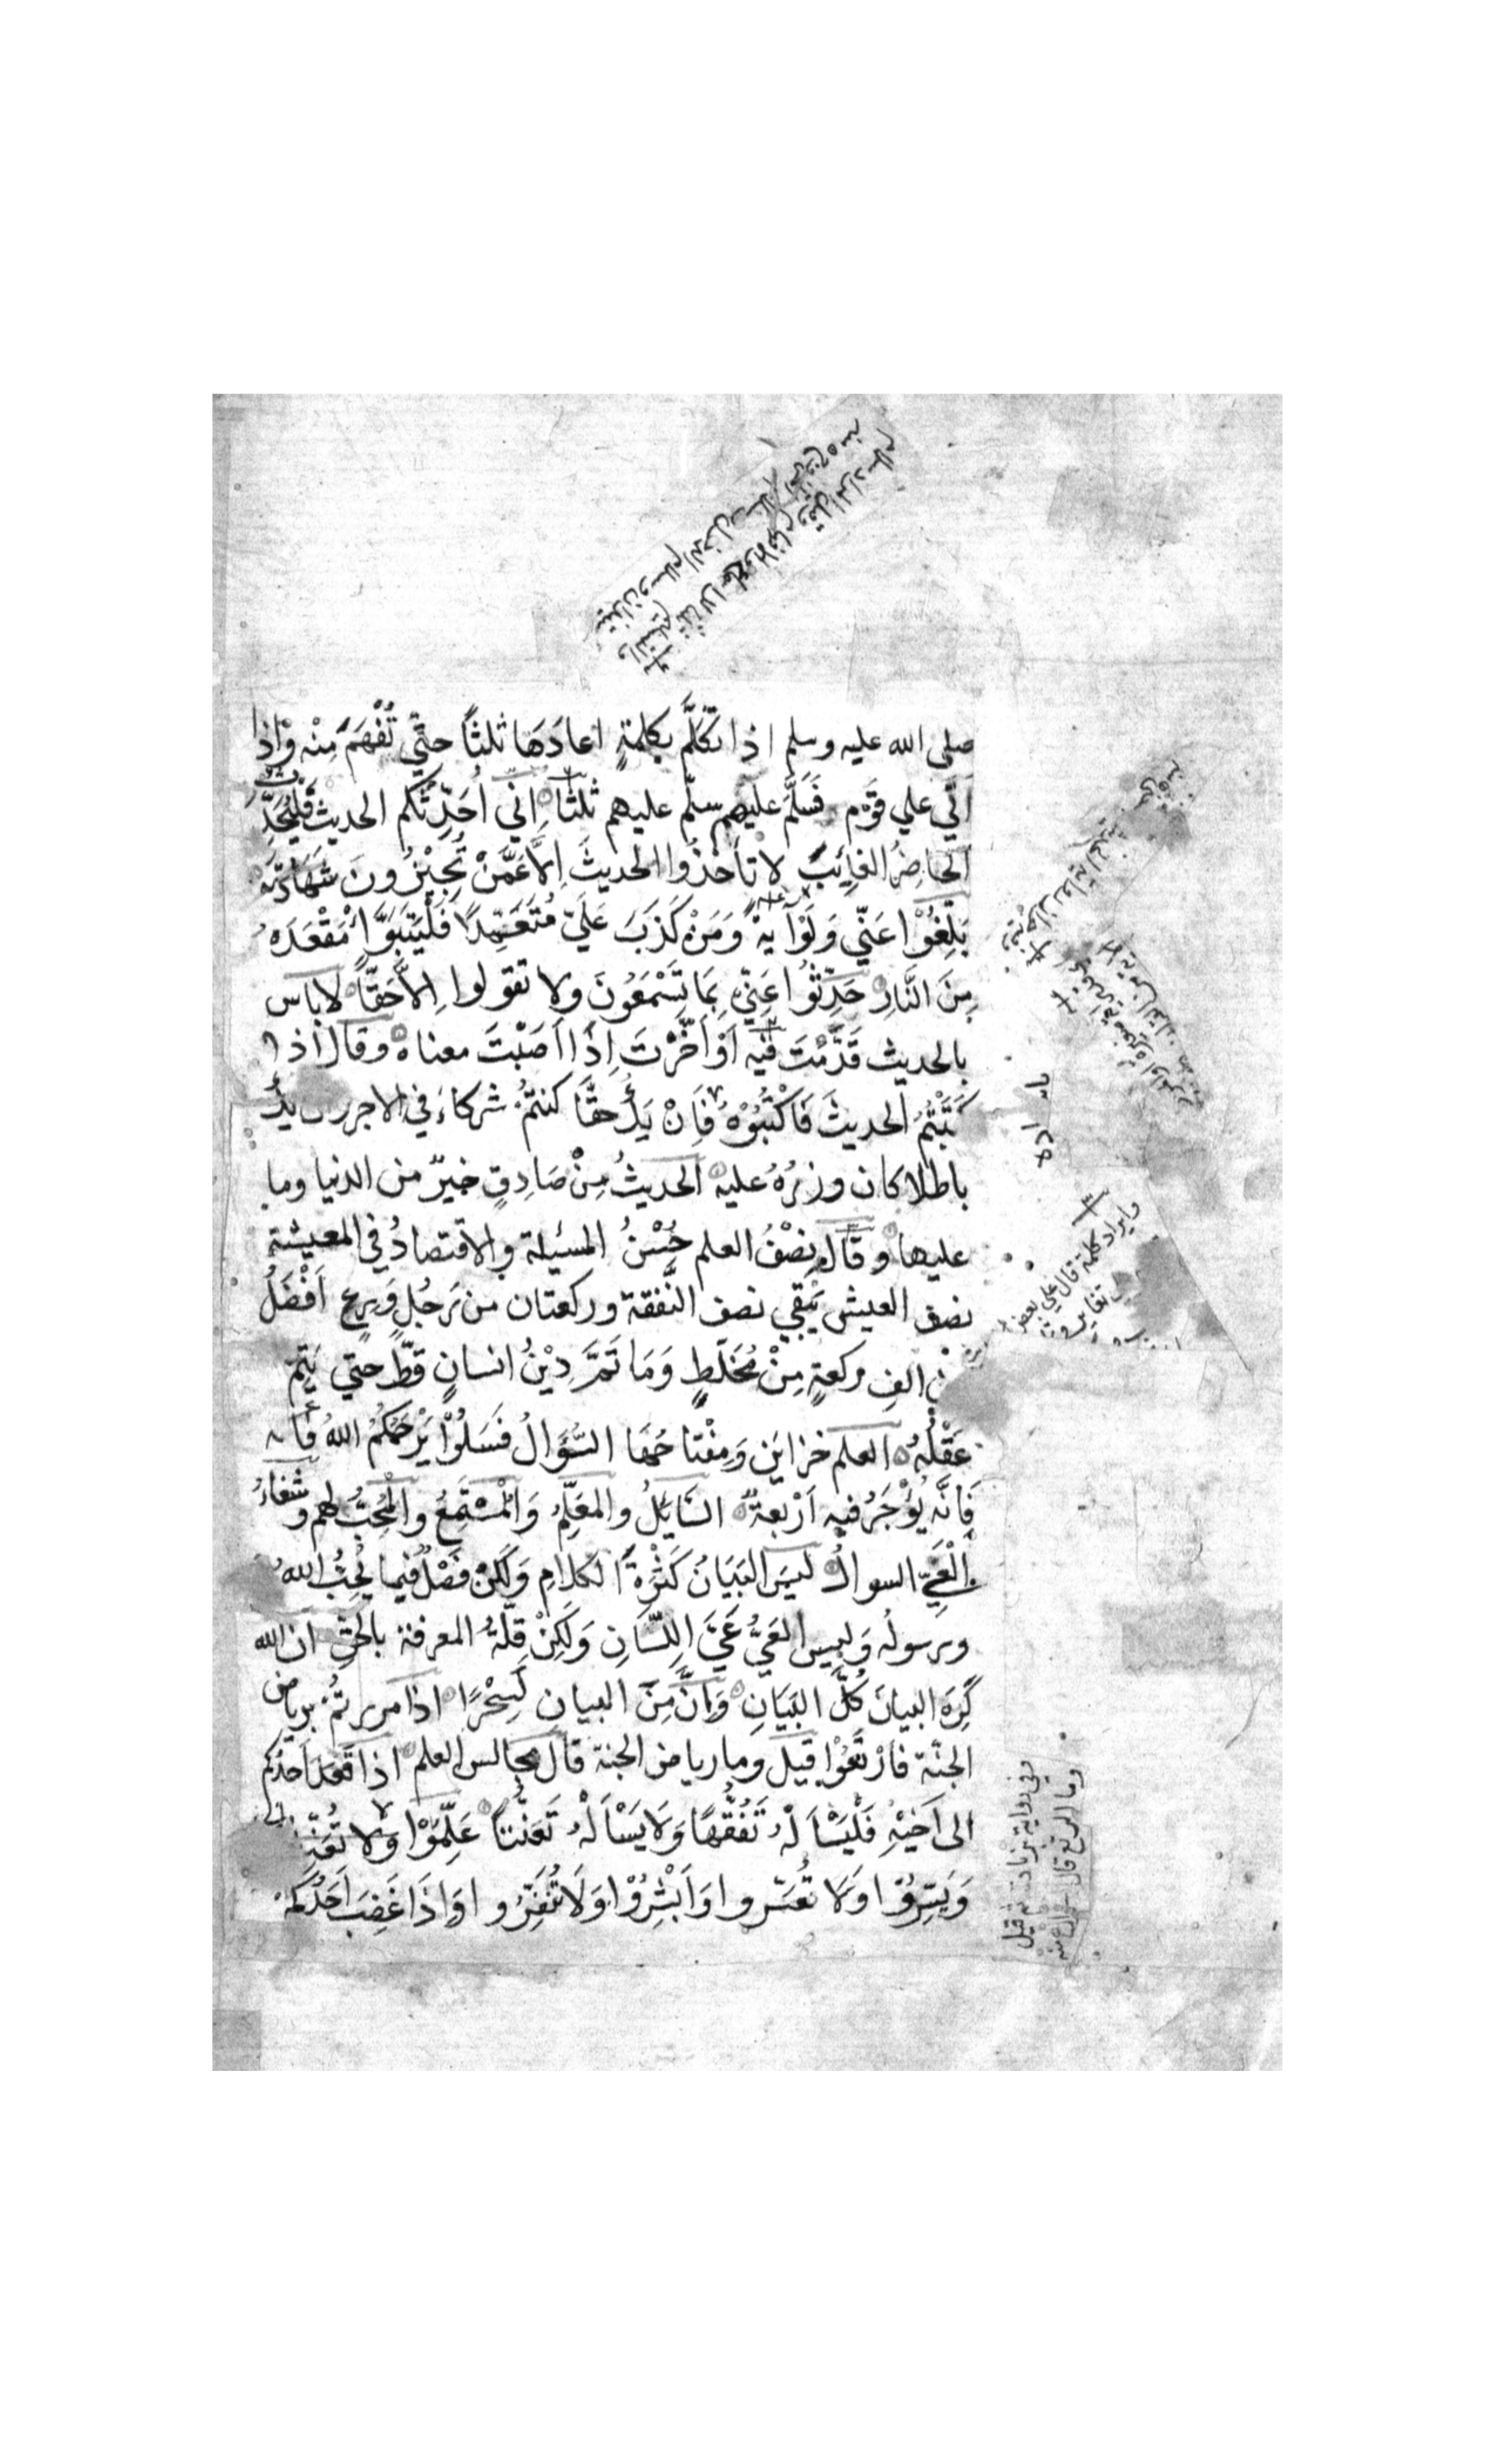 صلى الله عليه وسلم اذا تكَلَّم بكلمةٍ اعادَهَا ثلثًا حتّي تُفْهَمَ مِنْه وَاذا
اتي علي قَوْم فَسَلَّمَ عليهم سلّم عليهم ثلثًا اِنّي اُحَدِّثُكم الحديث فَلْيُحَدِّث
الحاضِرُ الغايِبَ لا تاَخُذُوا الحديثَ اِلَّا عَمَّنْ تُجِيْزُونَ شَهَادتَه
بَلِّغُوْا عَنّي وَلَوْ آيةً وَمَنْ كَذَبَ عَلَيّ مُتَعَمِّدًا فَلْيَتَبَوَّأْ مَقْعَدَهُ
مِنَ النَّارِ حَدِّثُوْا عَنّي بِمَا تَسْمَعُونَ ولا تقولوا اِلَّا حَقًّا لا باس
بالحديث قَدَّمْتَ فيه اَوْ اَخَّرْتَ اِذَا اَصَبْتَ معناه وقال اذا
كَتَبْتُمْ الحديثَ فَاكْتُبُوْهُ فَاِنْ يَكُ حقًّا كنتُمْ شركاءَ في الاجر وان يكُ
باطلا كان وِزْرُهُ عليه الحديثُ مِنْ صَادِقٍ خيرٌ من الدنيا وما
عليها وقال نِصْفُ العلم حُسْنُ المسئلة والاقتصادُ في المعيشة
نصف العيش يُبْقي نصف النَّفقة وركعتان من رَجُلٍ وَرِعٍ اَفْضَلُ
من الفِ ركعةٍ مِنْ مُخَلِّطٍ وَمَا تَمَّ دِيْنُ انسانٍ قطّ حتي يَتِمّ
عَقْلُهُ العلم خزاين وَمِفْتاحُهَا السُّؤَالُ فَسَلُوْا يَرْحَمُكُمُ اللهُ فانه
فَاِنَّه يُؤْجَرُ فيه اَرْبعةٌ السَّايلُ والمعَلِّمُ وَالْمُسْتَمِعُ والْمُحِبُّ لهم وشفاءُ
الْعَيِّ السوالُ ليسَ البَيَانُ كَثْرةَ الكلامِ وَلَكِنْ فَصْلٌ فيما يُحِبُّ اللهُ
ورسولُه وَلَيسَ العَيُّ عَيَّ اللِّسَانِ وَلَكِنْ قِلَّةُ المعرفة بالحقِّ ان الله
كَرِهَ البيانَ كُلَّ البَيَانِ وَاِنَّ مِنَ البيان لَسِحْرًا اذا مررتُمْ برياض
الجنّة فارْتَعُوْا قيلَ وما رياض الجنة قال مجالس العلم اذا قَعَدَ احدُكم
الى اَخِيْهِ فَلْيَسْأَلْهُ تَفَقُّهًا وَلَا يَسْأَلْهُ تَعَنُّتًا عَلِّمُوْا وَلا تُعَنِّفُ
وَيَسِّرُوْا وَلَا تُعَسِّروا وَاَبْشِرُوْا وَلَا تُنَفِّرُوا وَاِذَا غَضِبَ اَحَدُكم
وايراد كلمة قال علي بعض
وفي رواية بزيادة
وما الرتع قال